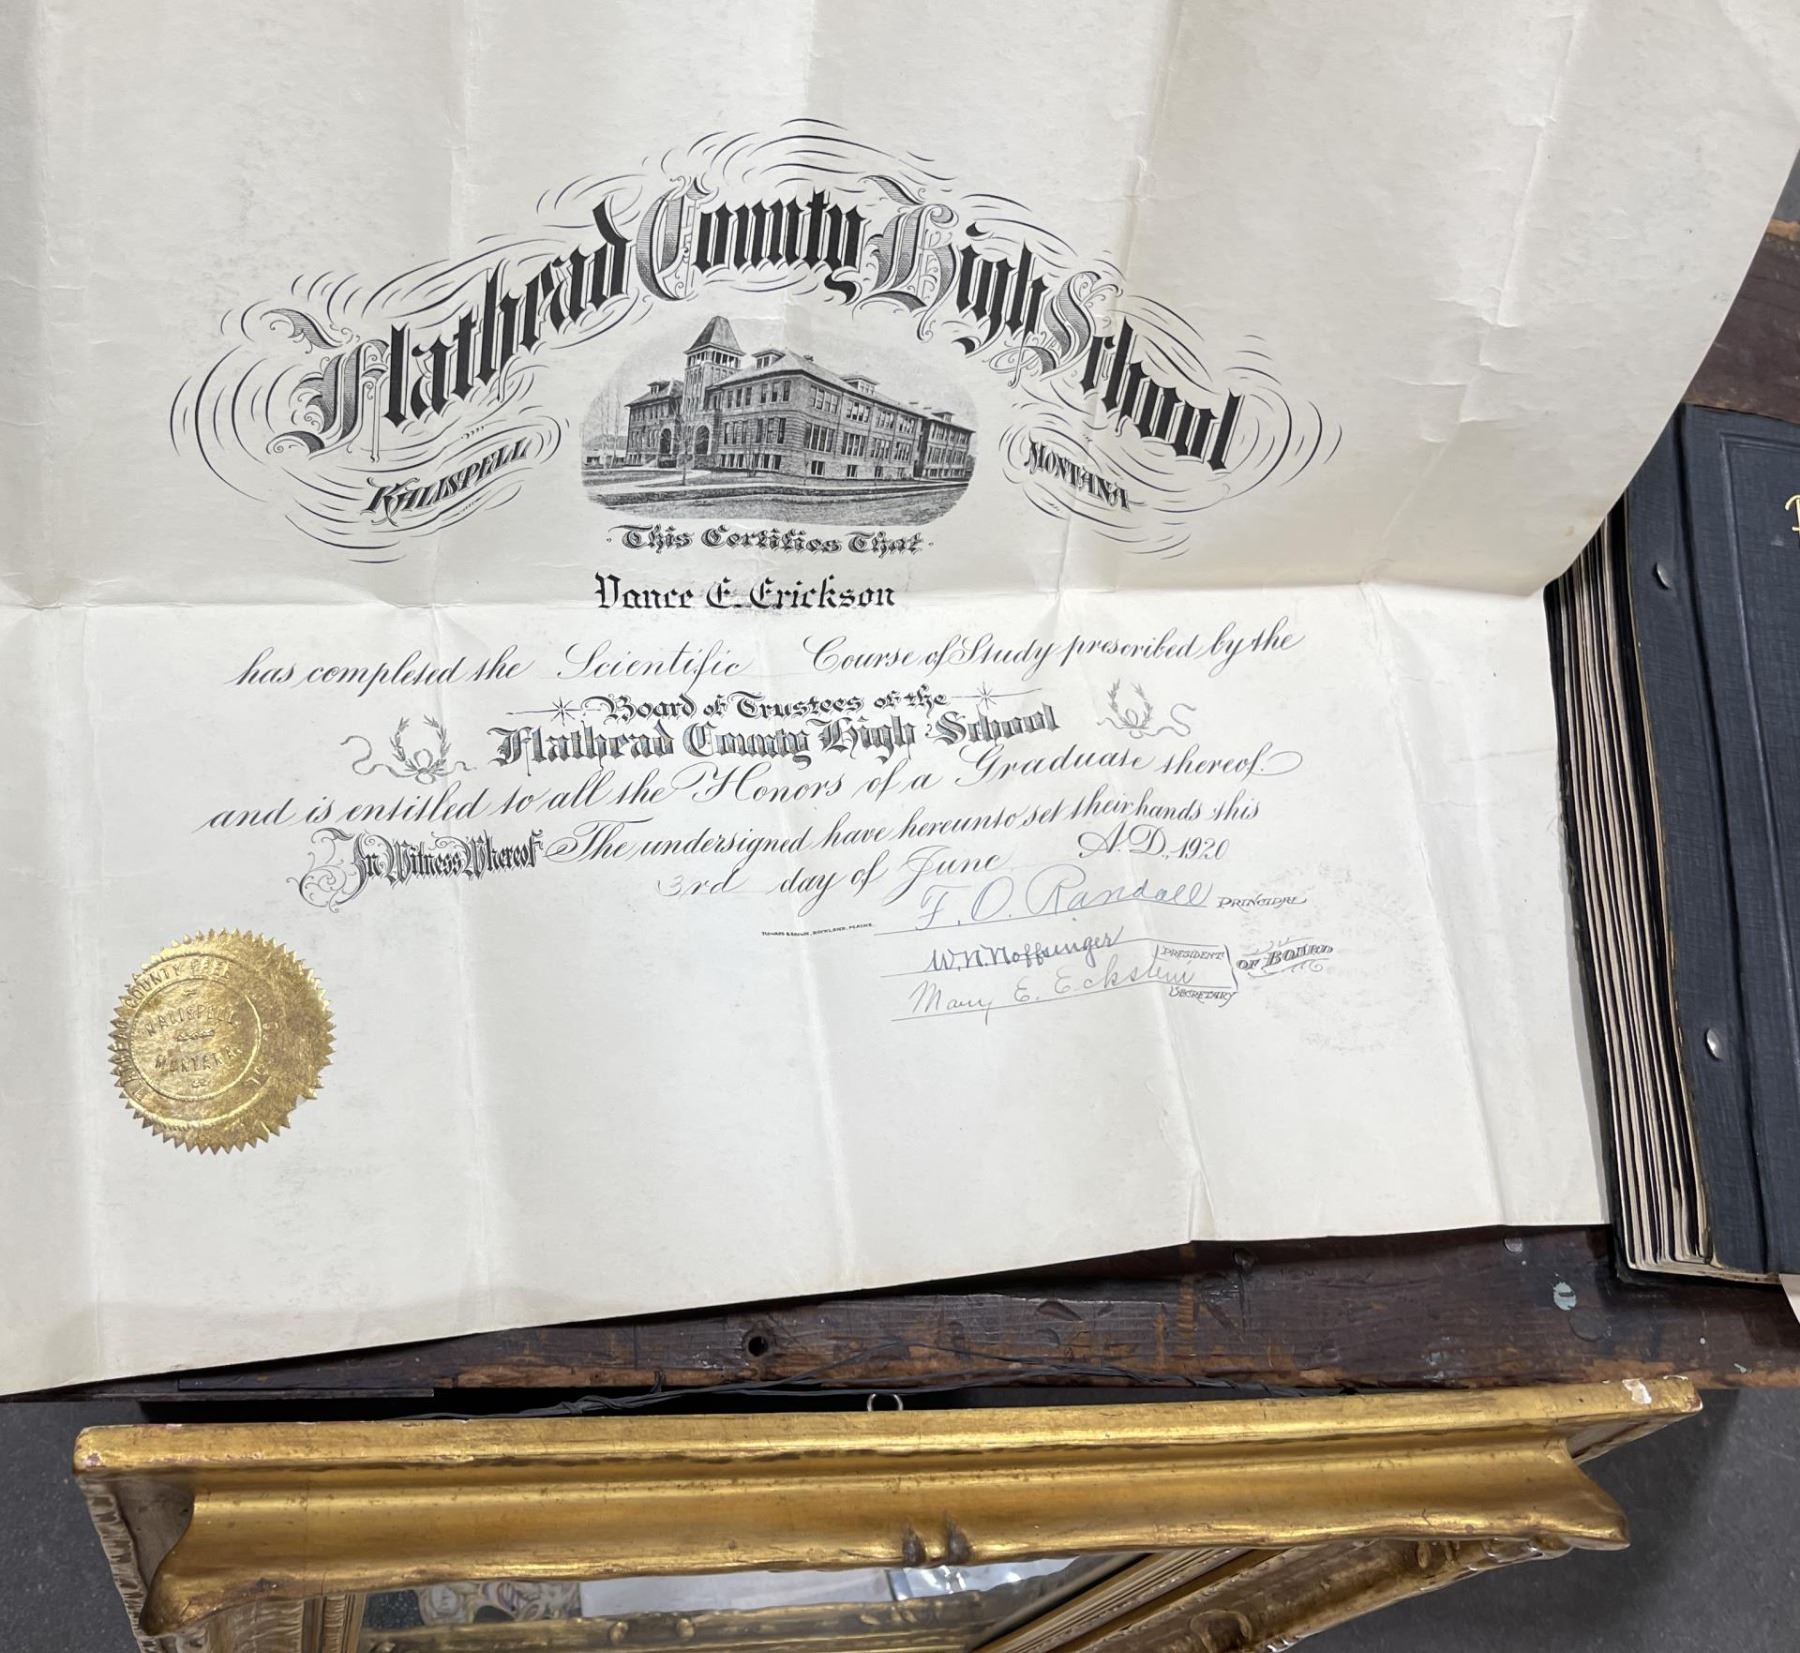 Flathead County High School
KALISPELL
MONTANA
This Certifies That
Vance E. Erickson
has completed the Scientific Course of Study prescribed by the
Board of Trustees of the
Flathead County High School
and is entitled to all the Honors of a Graduate thereof.
In Witness Whereof The undersigned have hereunto set their hands this
3rd day of June A.D., 1920
F. O. Randall PRINCIPAL
W. N. Noffsinger PRESIDENT
OF BOARD
Mary E. Eckstein SECRETARY
COUNTY FREE
KALISPELL
MONTANA